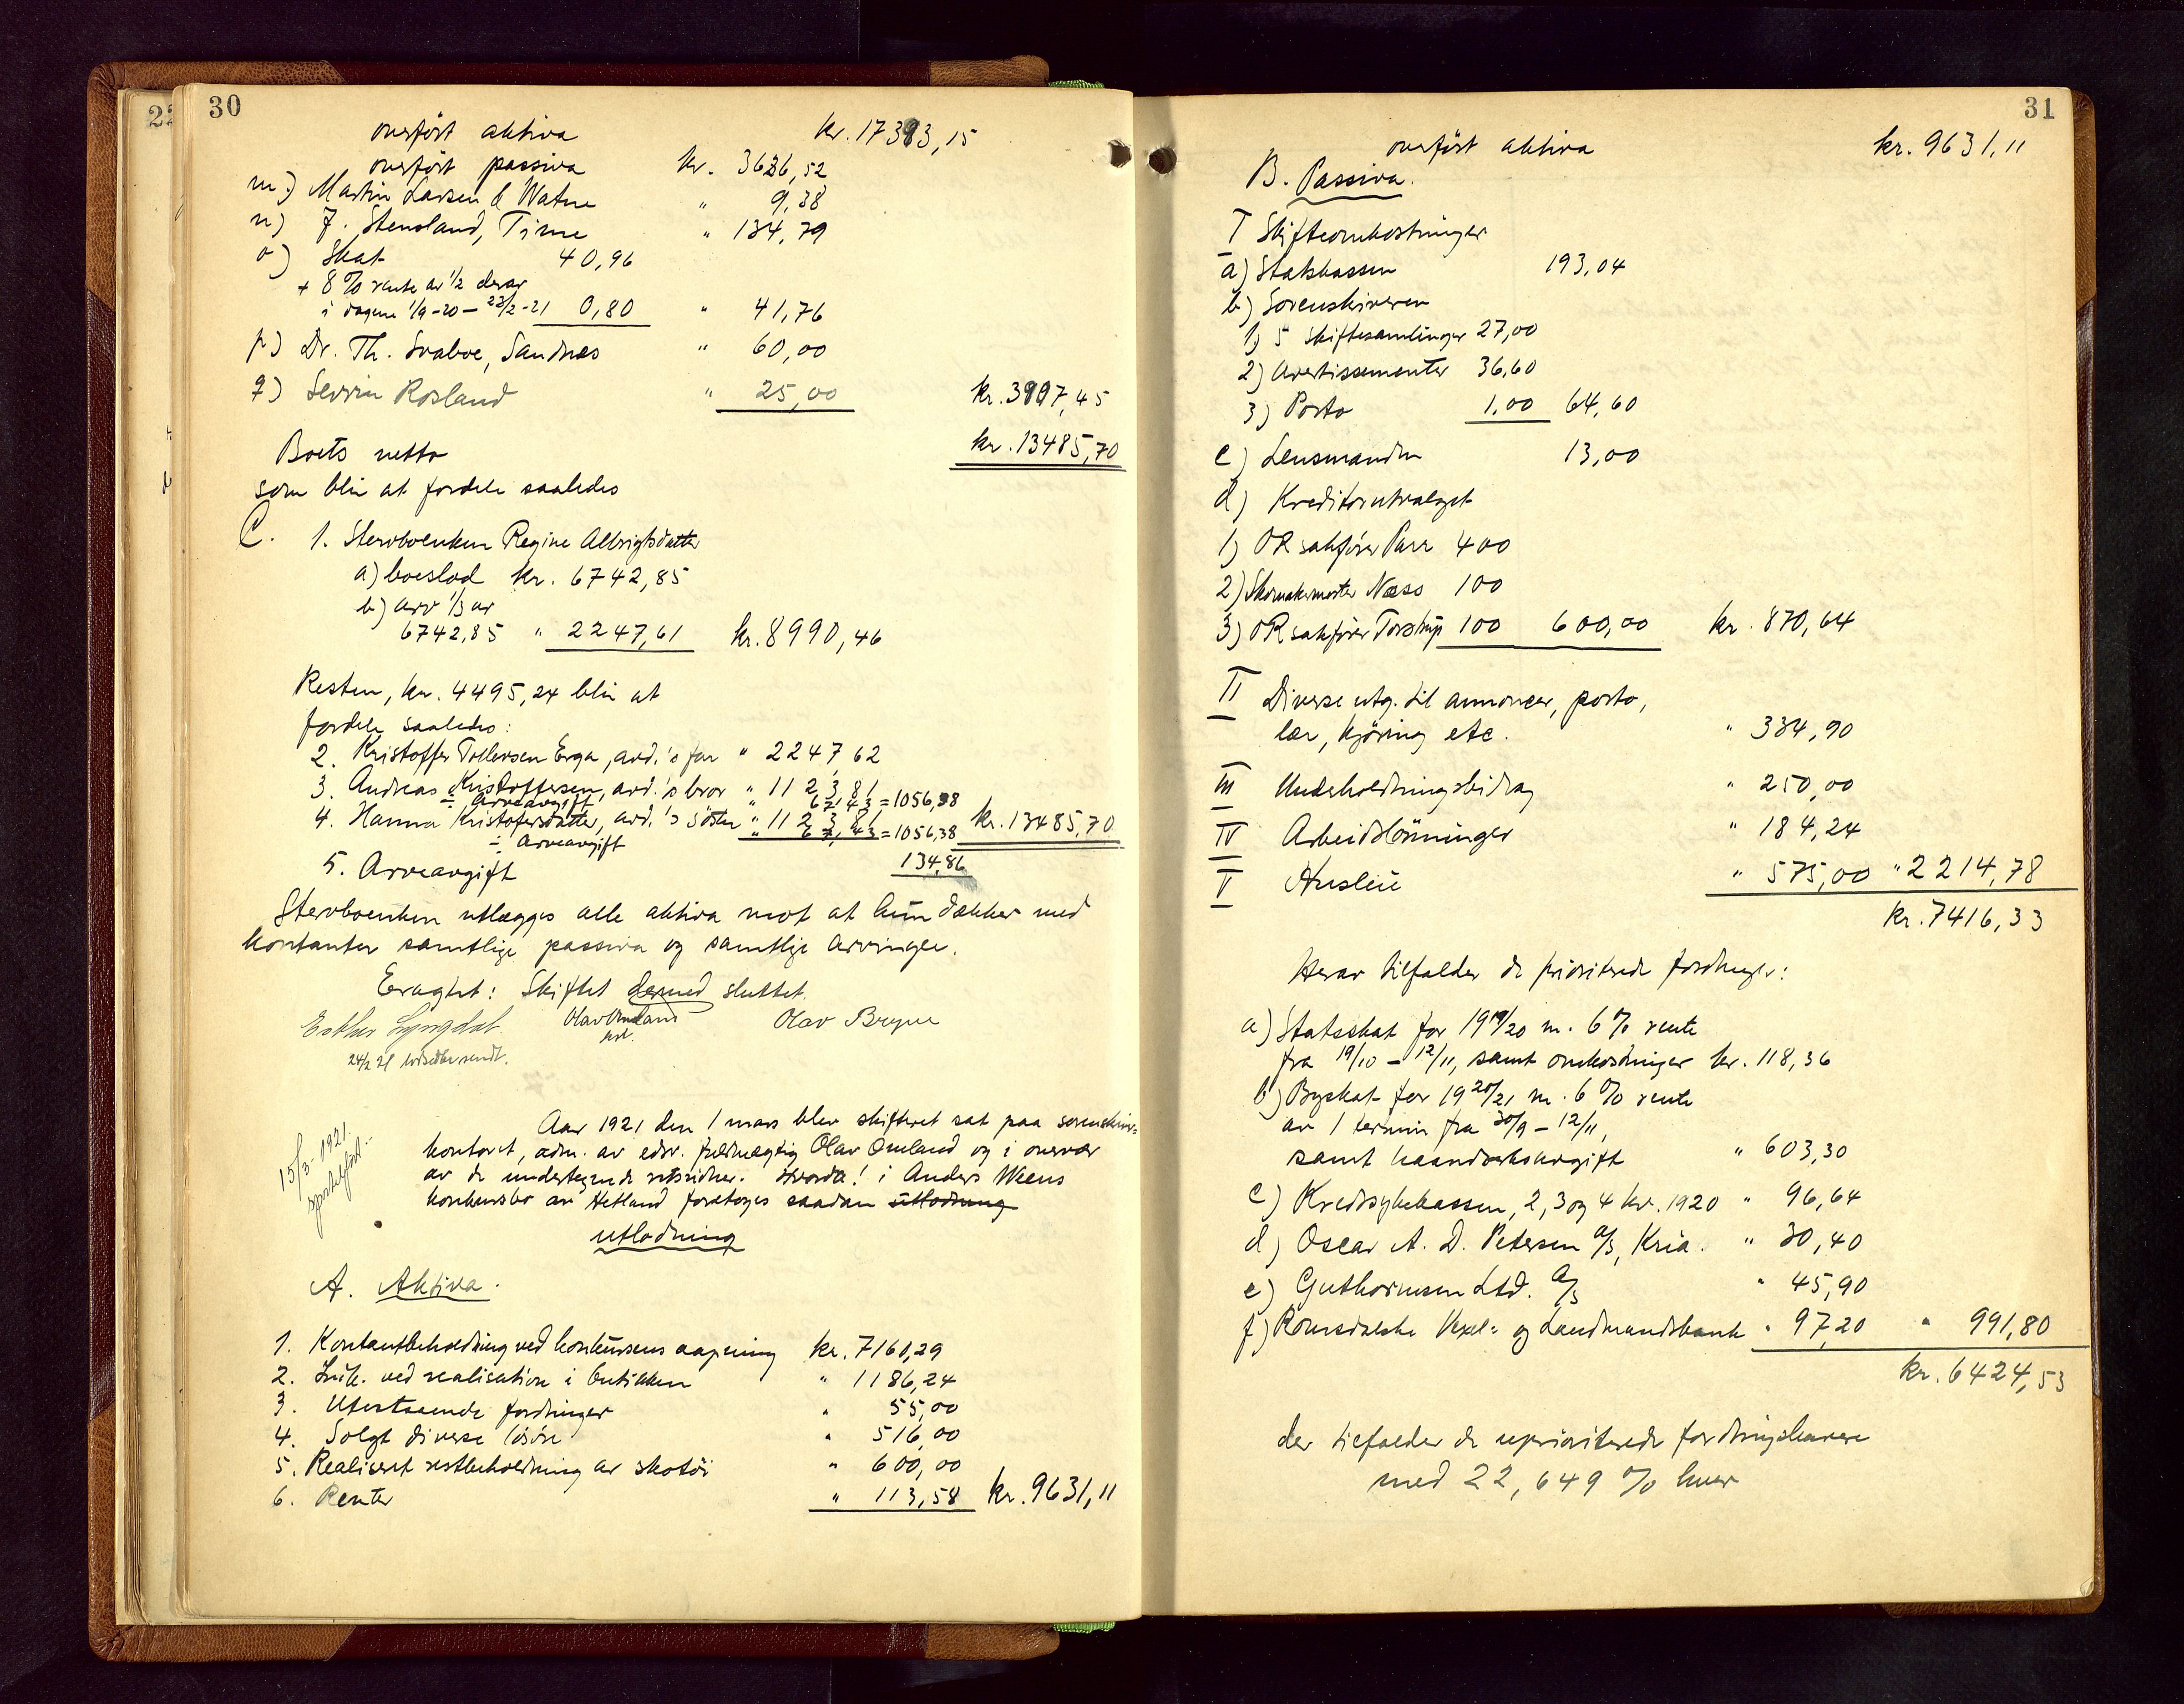 22
30
overført aktiva kr. 17383,15
overført passiva kr. 3626,52
m.) Martin Larsen & Watne " 9,38
n) J. Stensland, Time " 134,79
o) Skat 40,96
+ 8 % rente av 1/2 derav
i dagene 1/9-20 – 23/2-21 0,80 " 41,76
p) Dr. Th. Svaboe, Sandnæs " 60,00
q) Sevrin Rosland " 25,00 kr. 3897,45
Boets netto kr. 13485,70
som blir at fordele saaledes
C. 1. Stervboenken Regine Albrigtsdatter
a) boeslod kr. 6742,85
b) arv 1/3 av
6742,85 " 2247,61 kr. 8990,46
Resten, kr. 4495,24 blir at
fordele saaledes:
2. Kristoffer Tollevsen Erga, avd.'s far " 2247,62
3. Andreas Kristoffersen, avd.'s bror " 1123,81
÷ Arveavgift 67,43 = 1056,38
4. Hanna Kristofersdatter, avd.'s søster " 1123,81 kr. 13485,70
÷ Arveavgift 67,43 = 1056,38
5. Arveavgift 134,86
Stervboenken utlægges alle aktiva mot at hun dækker med
kontanter samtlige passiva og samtlige arvinger.
Eragtet: Skiftet dermed sluttet.
Esther Lyngdal. Olav Omland Olav Bryne
24/2 21 sendt.
Aar 1921 den 1 mars blev skifteret sat paa sorenskriver=
kontoret, adm. av edsv. fuldmægtig Olav Omland og i overvær
av de undertegnede retsvidner. Hvorda! i Anders Weens
konkursbo av Hetland foretoges saadan utlodning
utlodning
15/3-1921.
A. Aktiva.
1. Kontantbeholdning ved konkursens aapning kr. 7160,29
2. Indk. ved realisation i butikken " 1186,24
3. Utestaaende fordringer " 55,00
4. Solgt diverse løsøre " 516,00
5. Realiseret restbeholdning av skotøi " 600,00
6. Renter " 113,58 kr. 9631,11
31
overført aktiva kr. 9631,11
B. Passiva.
I Skifteomkostninger
a) Statskassen 193,04
b) Sorenskriveren
1) 5 Skiftesamlinger 27,00
2) Avertissementer 36,60
3) Porto 1,00 64,60
c) Lensmanden 13,00
d) Kreditorutvalget
1) OR sakfører Parr 400
2) Skomakermester Næss 100
3) OR sakfører Torstrup 100 600,00 kr. 870,64
II Diverse utg. til annoncer, porto,
lær, kjøring etc. " 334,90
III Underholdningsbidrag " 250,00
IV Arbeidslønninger " 184,24
V Husleie " 575,00 " 2214,78
kr. 7416,33
Herav tilfalder de prioriterede fordringer:
a) Statsskat for 1919/20 m. 6% rente
fra 19/10 – 12/11, samt omkostninger kr. 118,36
b) Byskat for 1920/21 m. 6% rente
av 1 termin fra 30/9 – 12/11,
samt haandverksavgift " 603,30
c) Kredssykekassen, 2, 3 og 4 kv. 1920 " 96,64
d) Oscar A. D. Petersen A/S, Kria. " 30,40
e) Guthormsen Ltd. A/S " 45,90
f) Romsdalske Vexel= og Landmandsbank " 97,20 " 991,80
kr. 6424,53
der tilfalder de uprioriterede fordringshavere
med 22,649 % hver